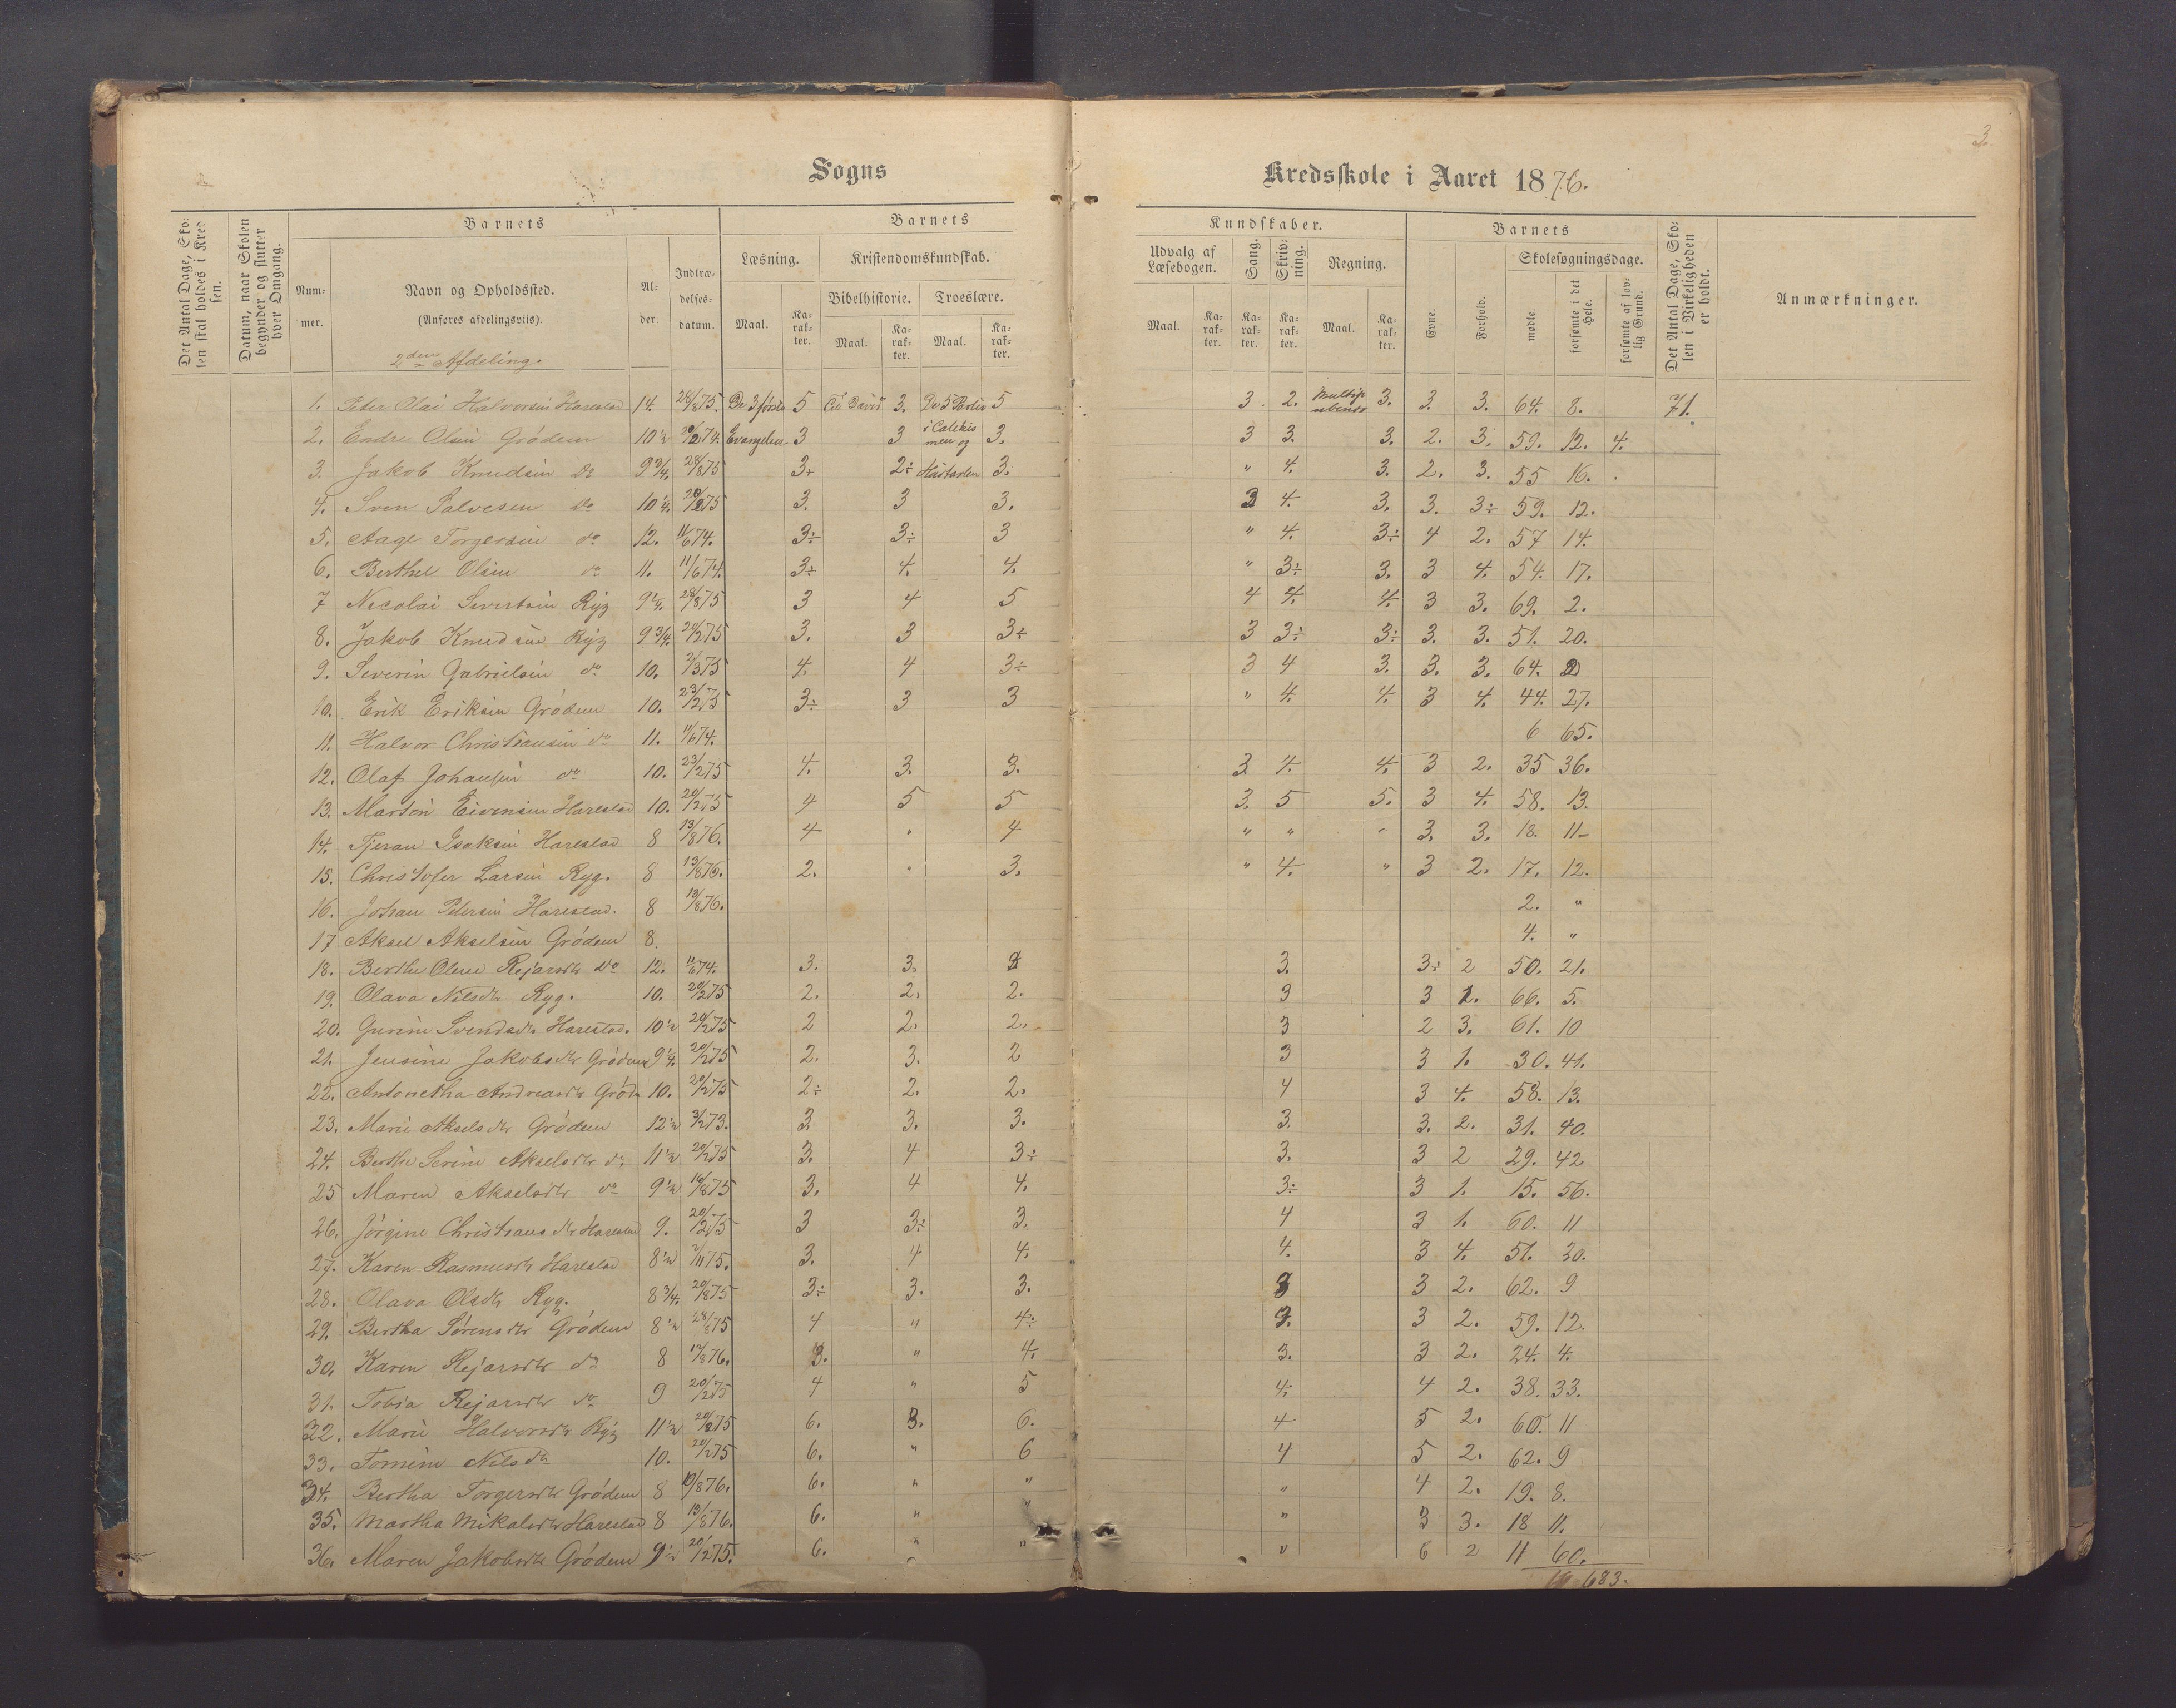 3.
Sogns
Kredsskole i Aaret 1876.
Det Antal Dage, Skolen skal holdes i Kredsen.
Datum, naar Skolen begynder og slutter hver Omgang.
Barnets
Nummer.
Navn og Opholdssted.
(Anføres afdelingsviis).
Alder.
Indtrædelsesdatum.
Barnets
Læsning.
Maal.
Karakter.
Kristendomskundskab.
Bibelhistorie.
Maal.
Karakter.
Troeslære.
Maal.
Karakter.
Kundskaber.
Udvalg af Læsebogen.
Maal.
Karakter.
Sang.
Karakter.
Skrivning.
Karakter.
Regning.
Maal.
Karakter.
Barnets
Evne.
Forhold.
Skolesøgningsdage.
mødte.
forsømte i det Hele.
forsømte af lovlig Grund.
Det Antal Dage, Skolen i Virkeligheden er holdt.
Anmærkninger.
2den Afdeling.
1. Peter Olai Halvorsen Harestad 14. 28/8 75. De 3 første 5 3. De 5 Parter 5 3. 2. 3. 3. 3. 64. 8. 71.
2. Endre Olsen Grødem 10½ 74. Evangelier 3 3 i Catekismen og 3. 3 3. 3. 2. 3. 59. 12. 4.
3. Jakob Knudsen do 9¾. 28/8 75 3. 2÷ Hustavlen 3. " 4. 3. 2. 3. 55 16.
4. Sven Salvesen do 10¼. 20/2 75 3. 3 3. 3 4. 3. 3. 3÷ 59. 12.
5. Aage Torgersen do 12. 11/6 74. 3÷ 3÷ 3 " 4. 3÷ 4 2. 57 14.
6. Berthel Olsen do 11. 11/6 74. 3÷ 4. 4. " 3÷ 3. 3 4. 54. 17.
7 Nicolai Sivertsen Ryg 9¼. 28/8 75 3 4 5 4 4. 4. 3 3. 69. 2.
8. Jakob Knudsen Ryg 9¾. 75 3. 3 3÷ 3 3÷ 3÷ 3. 3. 51. 20.
9. Severin Gabrielsen do 10. 75 4. 4 3÷ 3 4 3. 3. 3. 64.
10. Erik Eriksen Grødem 10. 23/2 75 3÷ 3 3 " 4. 4. 3 4. 44. 27.
11. Halvor Christiansen do 11. 11/6 74. 6 65.
12. Olaf Johansen do 10. 23/2 75 4. 3. 3. 3 4. 4. 3 2. 35 36.
13. Marten Eivensen Harestad 10. 20/2 75 4 5 5 3. 5 5. 3 4. 58. 13.
14. Tjeran Isaksen Harestad 8 13/8 76. 4 " 4 " " " 3. 3. 18. 11
15. Christofer Larsen Ryg. 8 13/8 76. 2. " 3. " 4. " 3 2. 17. 12.
16. Johan Petersen Harestad. 8 13/8 76. 2. "
17 Aksel Akselsen Grødem 8. 4. "
18. Berthe Oline Rejarsdtr do 12. 11/6 74. 3. 3. 3. 3÷ 2 50. 21.
19. Olava Nilsdtr Ryg. 10. 20/2 75 2. 2. 2. 3 3 2. 66. 5.
20. Gurine Svendsdtr Harestad. 10½ 20/2 75 2 2. 2. 3 2 3. 61. 10
21. Jensine Jakobsdtr Grødem 9¼. 20/2 75 2. 3. 2 3 3 1. 30. 41.
22. Antonetha Andreasdtr Grød. 10. 20/2 75 2÷ 2. 2. 4 3 4. 58. 13.
23. Marie Akselsdtr Grødem 12½ 73. 3. 3. 3. 3. 3. 2. 31. 40.
24. Berthe Serine Akselsdtr do 11½ 20/2 75 3. 4 3÷ 3. 3 2 29. 42
25 Maren Akselsdtr do 9½ 16/8 75 3. 4 4. 3÷ 3 1. 15. 56.
26. Jørgine Christiansdtr Harestad 9. 20/2 75 3 3÷ 3. 4 3 1. 60. 11
27. Karen Rasmusdtr Harestad 8½ 75. 3. 4 4. 4. 3 4. 51. 20.
28. Olava Olsdtr Ryg. 8¾. 20/8 75 3÷ 3. 3. 3 3 2. 62. 9
29. Bertha Sørensdtr Grødem 8½ 28/8 75 4 " 4÷ 3. 3 2. 59. 12.
30. Karen Rejarsdtr do 8 76. 3. " 4. 3. 3 2. 24. 4.
31. Tobia Rejarsdtr do 9 20/2 75 4 " 5 4. 4 2. 38. 33.
32. Marie Halvorsdtr Ryg 11½ 20/2 75 6. 3. 6. 4 5 2. 60. 11
33. Nilsdtr 10. 20/2 75 6. " 6 4 5 2. 62. 9
34. Bertha Torgersdtr Grødem 8 /8 76. 6. " " " 4 2. 19. 8.
35. Martha Mikalsdtr Harestad 8 13/8 76. 6. " " " 3 3. 18 11.
36. Maren Jakobsdtr Grødem 9½ 20/2 75. 6. " " " 6 2 11 60.
683.